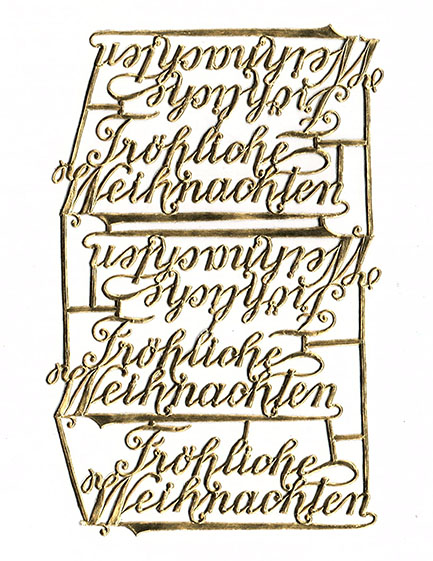 Weihnachten
Fröhliche
Fröhliche
Weihnachten
Weihnachten
Fröhliche
Fröhliche
Weihnachten
Fröhliche
Weihnachten